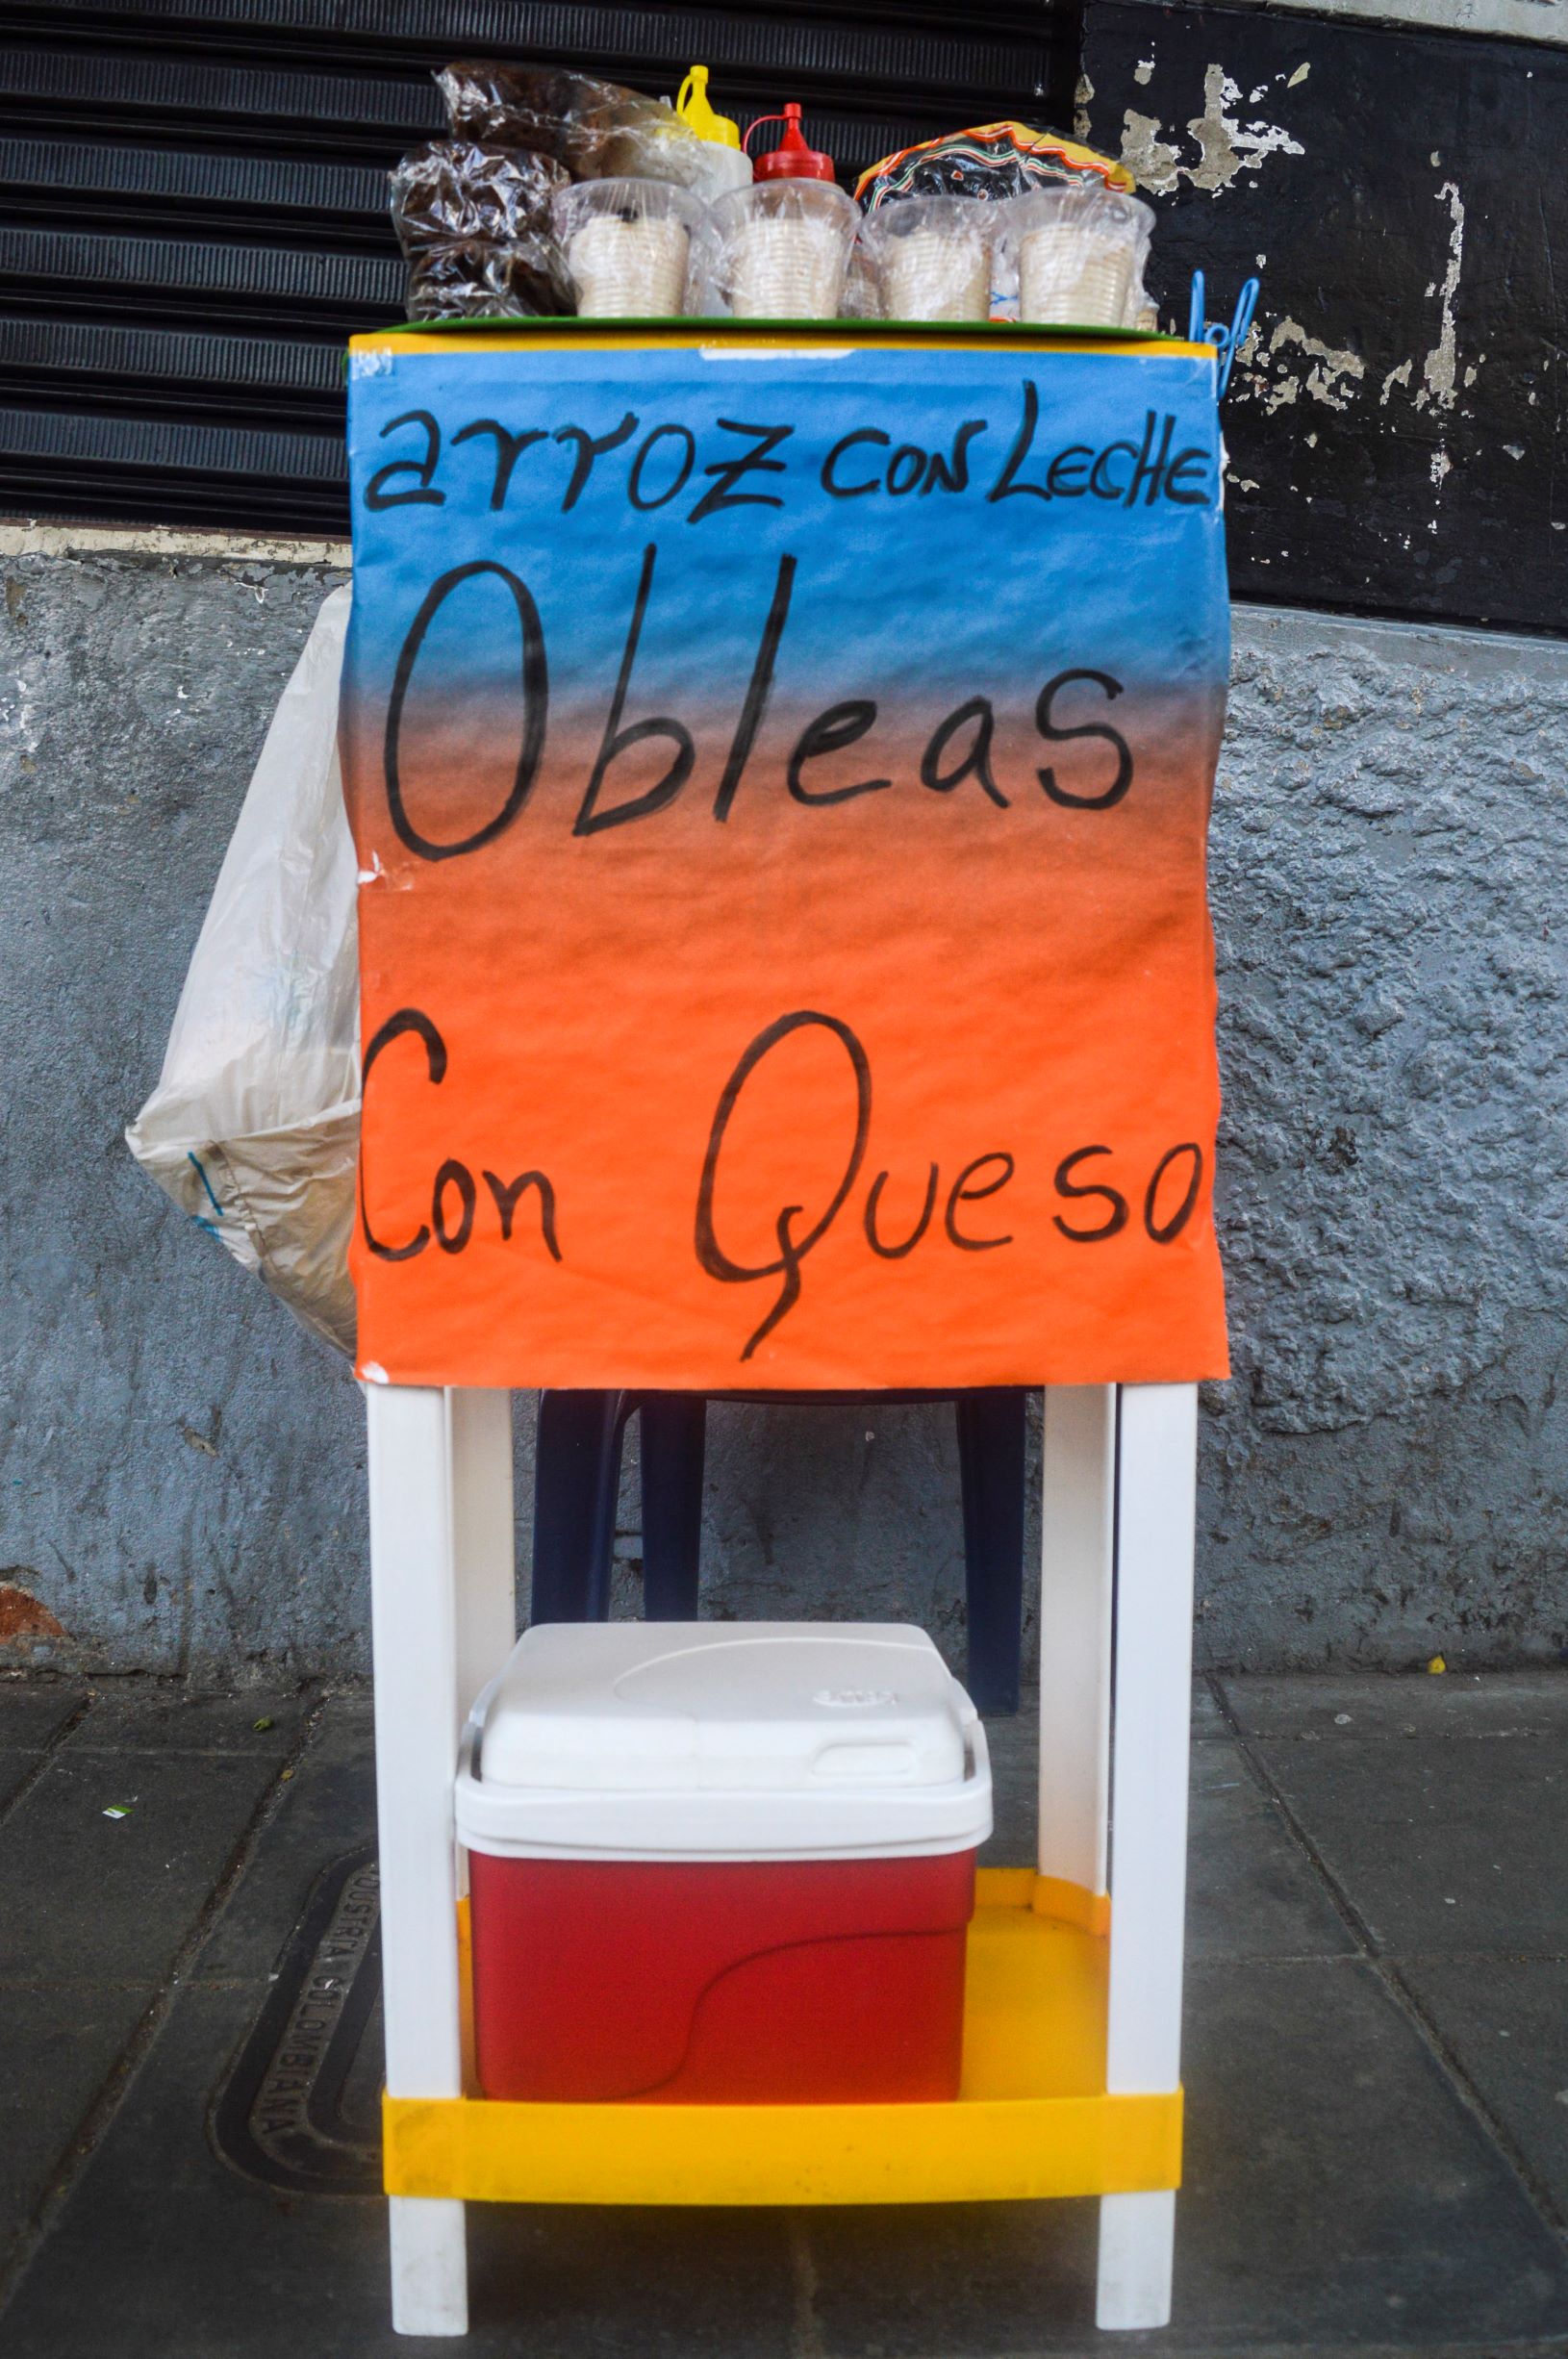 arroz con Leche
Obleas
Con Queso
INDUSTRIA COLOMBIANA